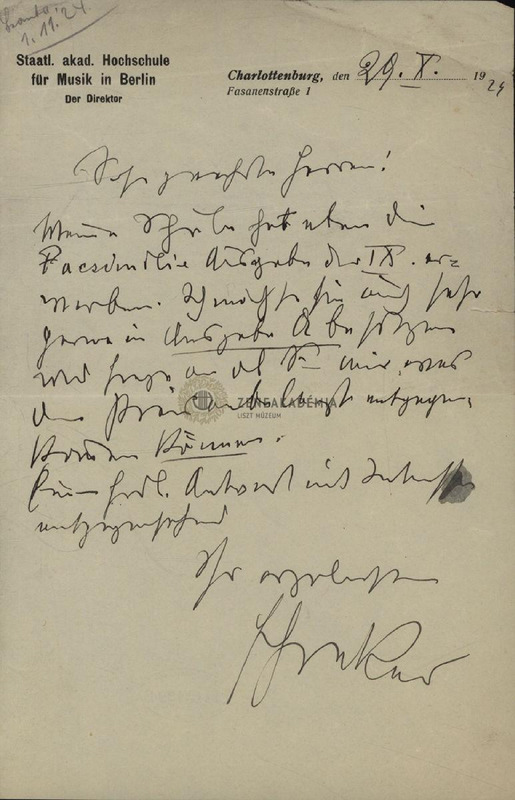 1.11.24.
Staatl. akad. Hochschule
für Musik in Berlin
Der Direktor
Charlottenburg, den 29. X. 1924
Fasanenstraße 1
Sehr geehrte Herren!
Meine Schule hat eben die
Facsimilie Ausgabe der IX. er=
worben. Ich möchte sie auch sehr
gerne in Ausgabe A besitzen
und frage an ob Sie mir, was
den Preis anbelangt entgegen
kommen können.
Ihrer frdl. Antwort mit Interesse
entgegensehend
Ihr ergebenster
Schreker
ZENEAKADÉMIA
LISZT MÚZEUM